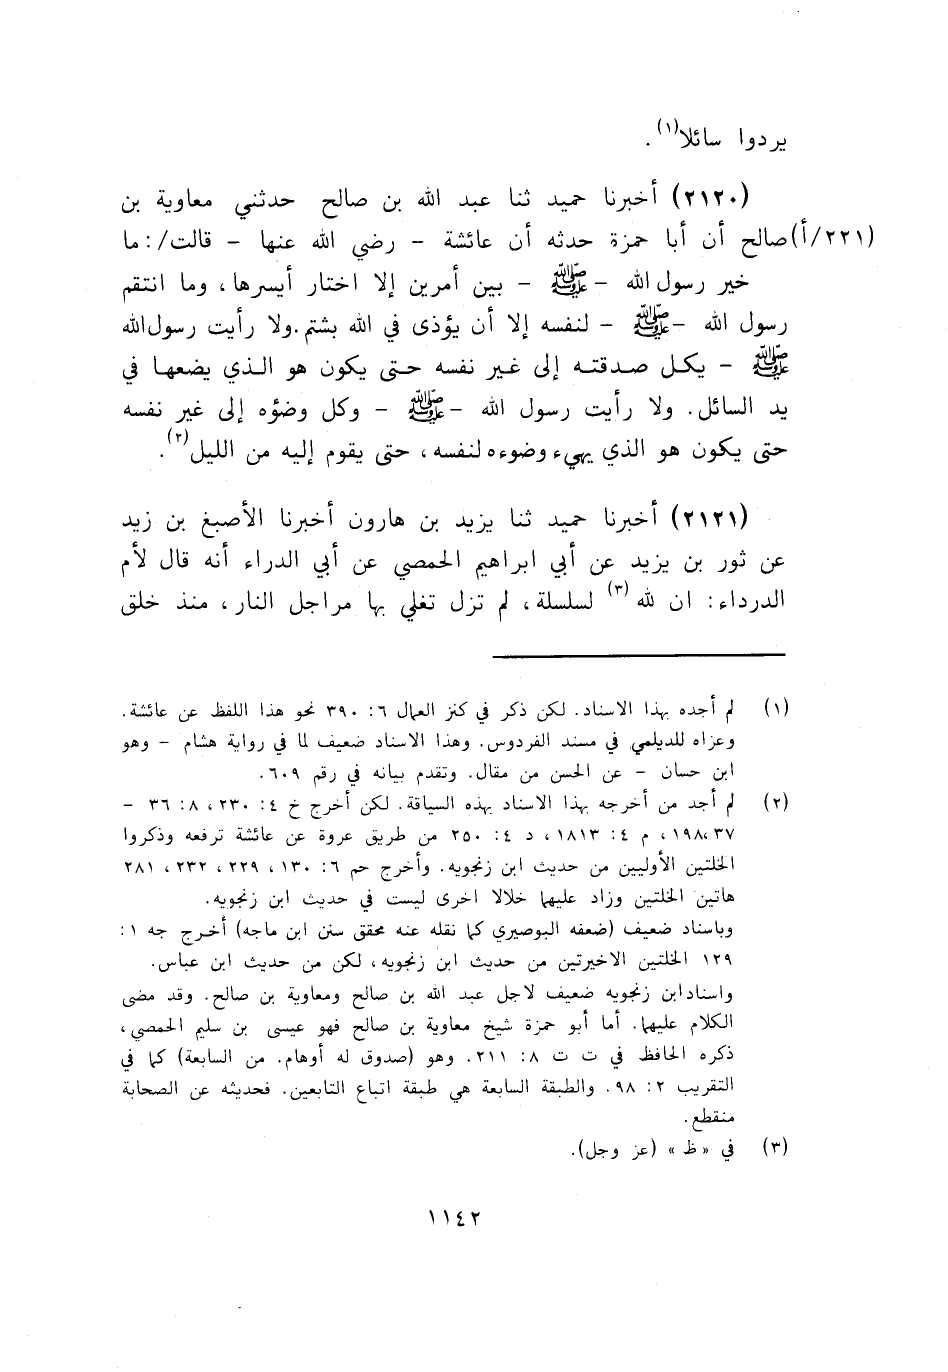 يردوا سائلا(١).
(٢١٢٠) أخبرنا حميد ثنا عبد الله بن صالح حدثني معاوية بن
(٢٢١/أ) صالح أن أبا حمزة حدثه أن عائشة - رضي الله عنها - قالت/: ما
خير رسول الله - ﷺ - بين أمرين إلا اختار أيسرها، وما انتقم
رسول الله - ﷺ - لنفسه إلا أن يؤذى في الله بشتم. ولا رأيت رسول الله
ﷺ - يكل صدقته إلى غير نفسه حتى يكون هو الذي يضعها في
يد السائل. ولا رأيت رسول الله - ﷺ - وكل وضؤه إلى غير نفسه
حتى يكون هو الذي يهيء وضوءه لنفسه، حتى يقوم إليه من الليل(٢).
(٢١٢١) أخبرنا حميد ثنا يزيد بن هارون أخبرنا الأصبغ بن زيد
عن ثور بن يزيد عن أبي ابراهيم الحمصي عن أبي الدراء أنه قال لأم
الدرداء: ان لله(٣) لسلسلة، لم تزل تغلي بها مراجل النار، منذ خلق
(١) لم أجده بهذا الاسناد. لكن ذكر في كنز العمال ٦: ٣٩٠ نحو هذا اللفظ عن عائشة.
وعزاه للديلمي في مسند الفردوس. وهذا الاسناد ضعيف لما في رواية هشام - وهو
ابن حسان - عن الحسن من مقال. وتقدم بيانه في رقم ٦٠٩.
(٢) لم أجد من أخرجه بهذا الاسناد بهذه السياقة. لكن أخرج خ ٤: ٢٣٠، ٨: ٣٦ -
٣٧، ١٩٨، م ٤: ١٨١٣، د ٤: ٢٥٠ من طريق عروة عن عائشة ترفعه وذكروا
الخلتين الأوليين من حديث ابن زنجويه. وأخرج حم ٦: ١٣٠، ٢٢٩، ٢٣٢، ٢٨١
هاتين الخلتين وزاد عليهما خلالا اخرى ليست في حديث ابن زنجويه.
وباسناد ضعيف (ضعفه البوصيري كما نقله عنه محقق سنن ابن ماجه) أخرج جه ١:
١٢٩ الخلتين الاخيرتين من حديث ابن زنجويه، لكن من حديث ابن عباس.
واسناد ابن زنجويه ضعيف لاجل عبد الله بن صالح ومعاوية بن صالح. وقد مضى
الكلام عليهما. أما أبو حمزة شيخ معاوية بن صالح فهو عيسى بن سليم الحمصي،
ذكره الحافظ في ت ت ٨: ٢١١. وهو (صدوق له أوهام. من السابعة) كما في
التقريب ٢: ٩٨. والطبقة السابعة هي طبقة اتباع التابعين. فحديثه عن الصحابة
منقطع.
(٣) في «ظ» (عز وجل).
١١٤٢